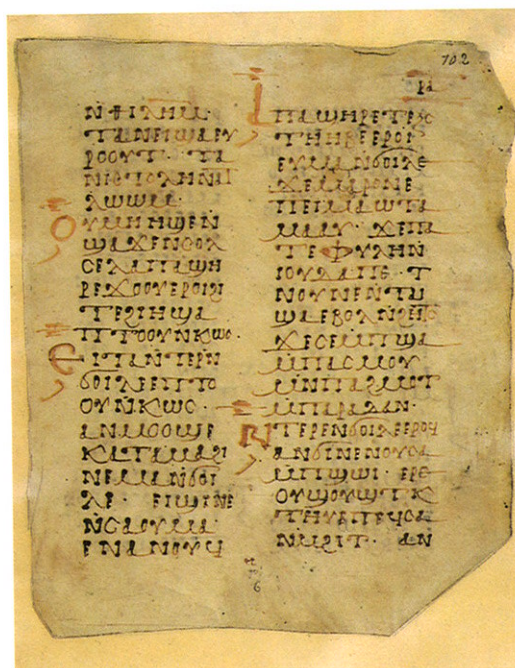 702
ⲣⲁ
ⲛⲫⲓⲗⲏⲙ·
ⲧⲁⲛⲉⲓϣⲁⲉⲩ
ⲣⲟⲟⲩⲧ· ⲧⲁ
ⲗⲱⲱⲙ
ⲟⲩⲙⲏⲏϣⲉⲛ
ϣⲁϫⲉⲛⲥⲟⲗ
ⲥⲉⲗⲁⲡⲁϣⲏ
ⲣⲉϫⲟⲟⲩⲉⲣⲟⲓϩⲓ
ⲧⲉϩⲓⲏϣⲁ
ⲡⲧⲟⲟⲩⲛⲕⲱⲥ·
ⲉⲓⲧⲁⲛⲧⲉⲣⲛ
ϭⲟⲓⲗⲉⲉⲡⲧⲟ
ⲟⲩⲛⲕⲱⲥ·
ⲁⲛⲙⲟⲟϣⲉ
ⲕⲁⲧⲁⲙⲁⲣⲓ
ⲛⲉⲙⲁⲛϭⲟⲓ
ⲗⲉ· ⲉⲓϣⲓⲛⲉ
ⲛⲥⲁⲟⲩⲙⲁ
ⲉⲛⲁⲛⲟⲩϥ
ⲓⲡⲁϣⲏⲣⲉⲧⲣⲉ
ⲧⲏⲏⲃⲉⲉⲣⲟⲓ
ⲉⲩⲙⲁⲛϭⲟⲓⲗⲉ
ϫⲉⲙⲁⲣⲟⲛⲉ
ⲡⲉⲓⲙⲁϣⲧⲁ
ⲙⲙⲁⲩ· ϫⲉⲡⲁ
ⲧⲉⲫⲩⲗⲏⲛ
ⲓⲟⲩⲇⲁⲡⲉ· ⲧ
ⲛⲟⲩⲛⲉⲛⲧⲁ
ϣⲁⲉⲃⲟⲗⲛϩⲏⲧ
ϫⲉⲥⲉⲙⲡϣⲁ
ⲙⲡⲁⲥⲙⲟⲩ
ⲙⲛⲡⲁϩⲙⲟⲧ
ⲙⲡⲁⲣⲁⲇⲁⲛ·
ⲛⲧⲉⲣⲉⲛϭⲟⲓⲗⲉⲉⲣⲟϥ
ⲁⲛϭⲓⲛⲉⲛⲟⲩⲥⲁ
ⲙⲡϣⲱⲓ· ⲉⲣⲉ
ⲟⲩϣⲟⲩϣⲧⲕ
ⲧⲏⲩⲉⲡⲉϥⲥⲁ
ⲛϩⲏⲧ· ⲁⲛ
6